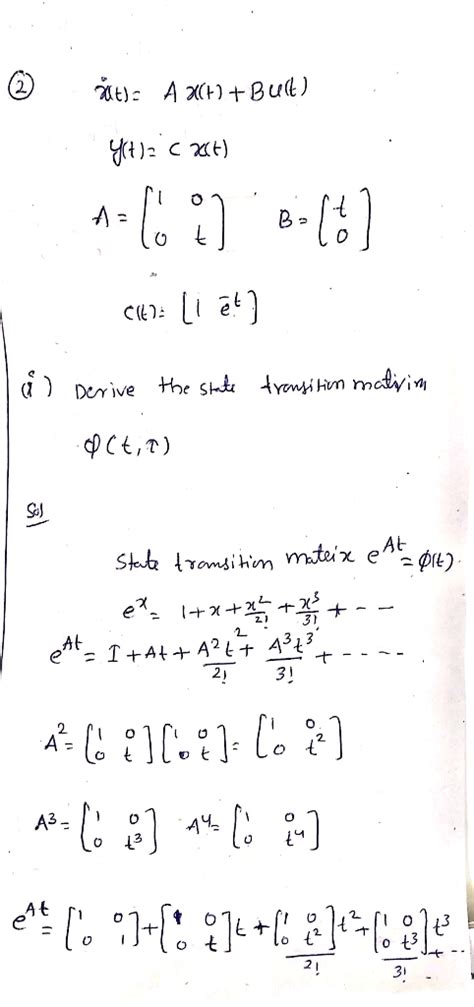 ② ẋ(t) = A x(t) + B u(t)
y(t) = C x(t)
A = [1 0; 0 t] B = [t; 0]
C(t) = [1 e^-t]
(i) Derive the state transition matrix
Φ(t, τ)
Sol
State transition matrix e^At = φ(t).
e^x = 1 + x + x^2/2! + x^3/3! + - -
e^At = I + At + A^2 t^2/2! + A^3 t^3/3! + - - - -
A^2 = [1 0; 0 t] [1 0; 0 t] = [1 0; 0 t^2]
A^3 = [1 0; 0 t^3] A^4 = [1 0; 0 t^4]
e^At = [1 0; 0 1] + [1 0; 0 t] t + [1 0; 0 t^2] t^2/2! + [1 0; 0 t^3] t^3/3! + - - -